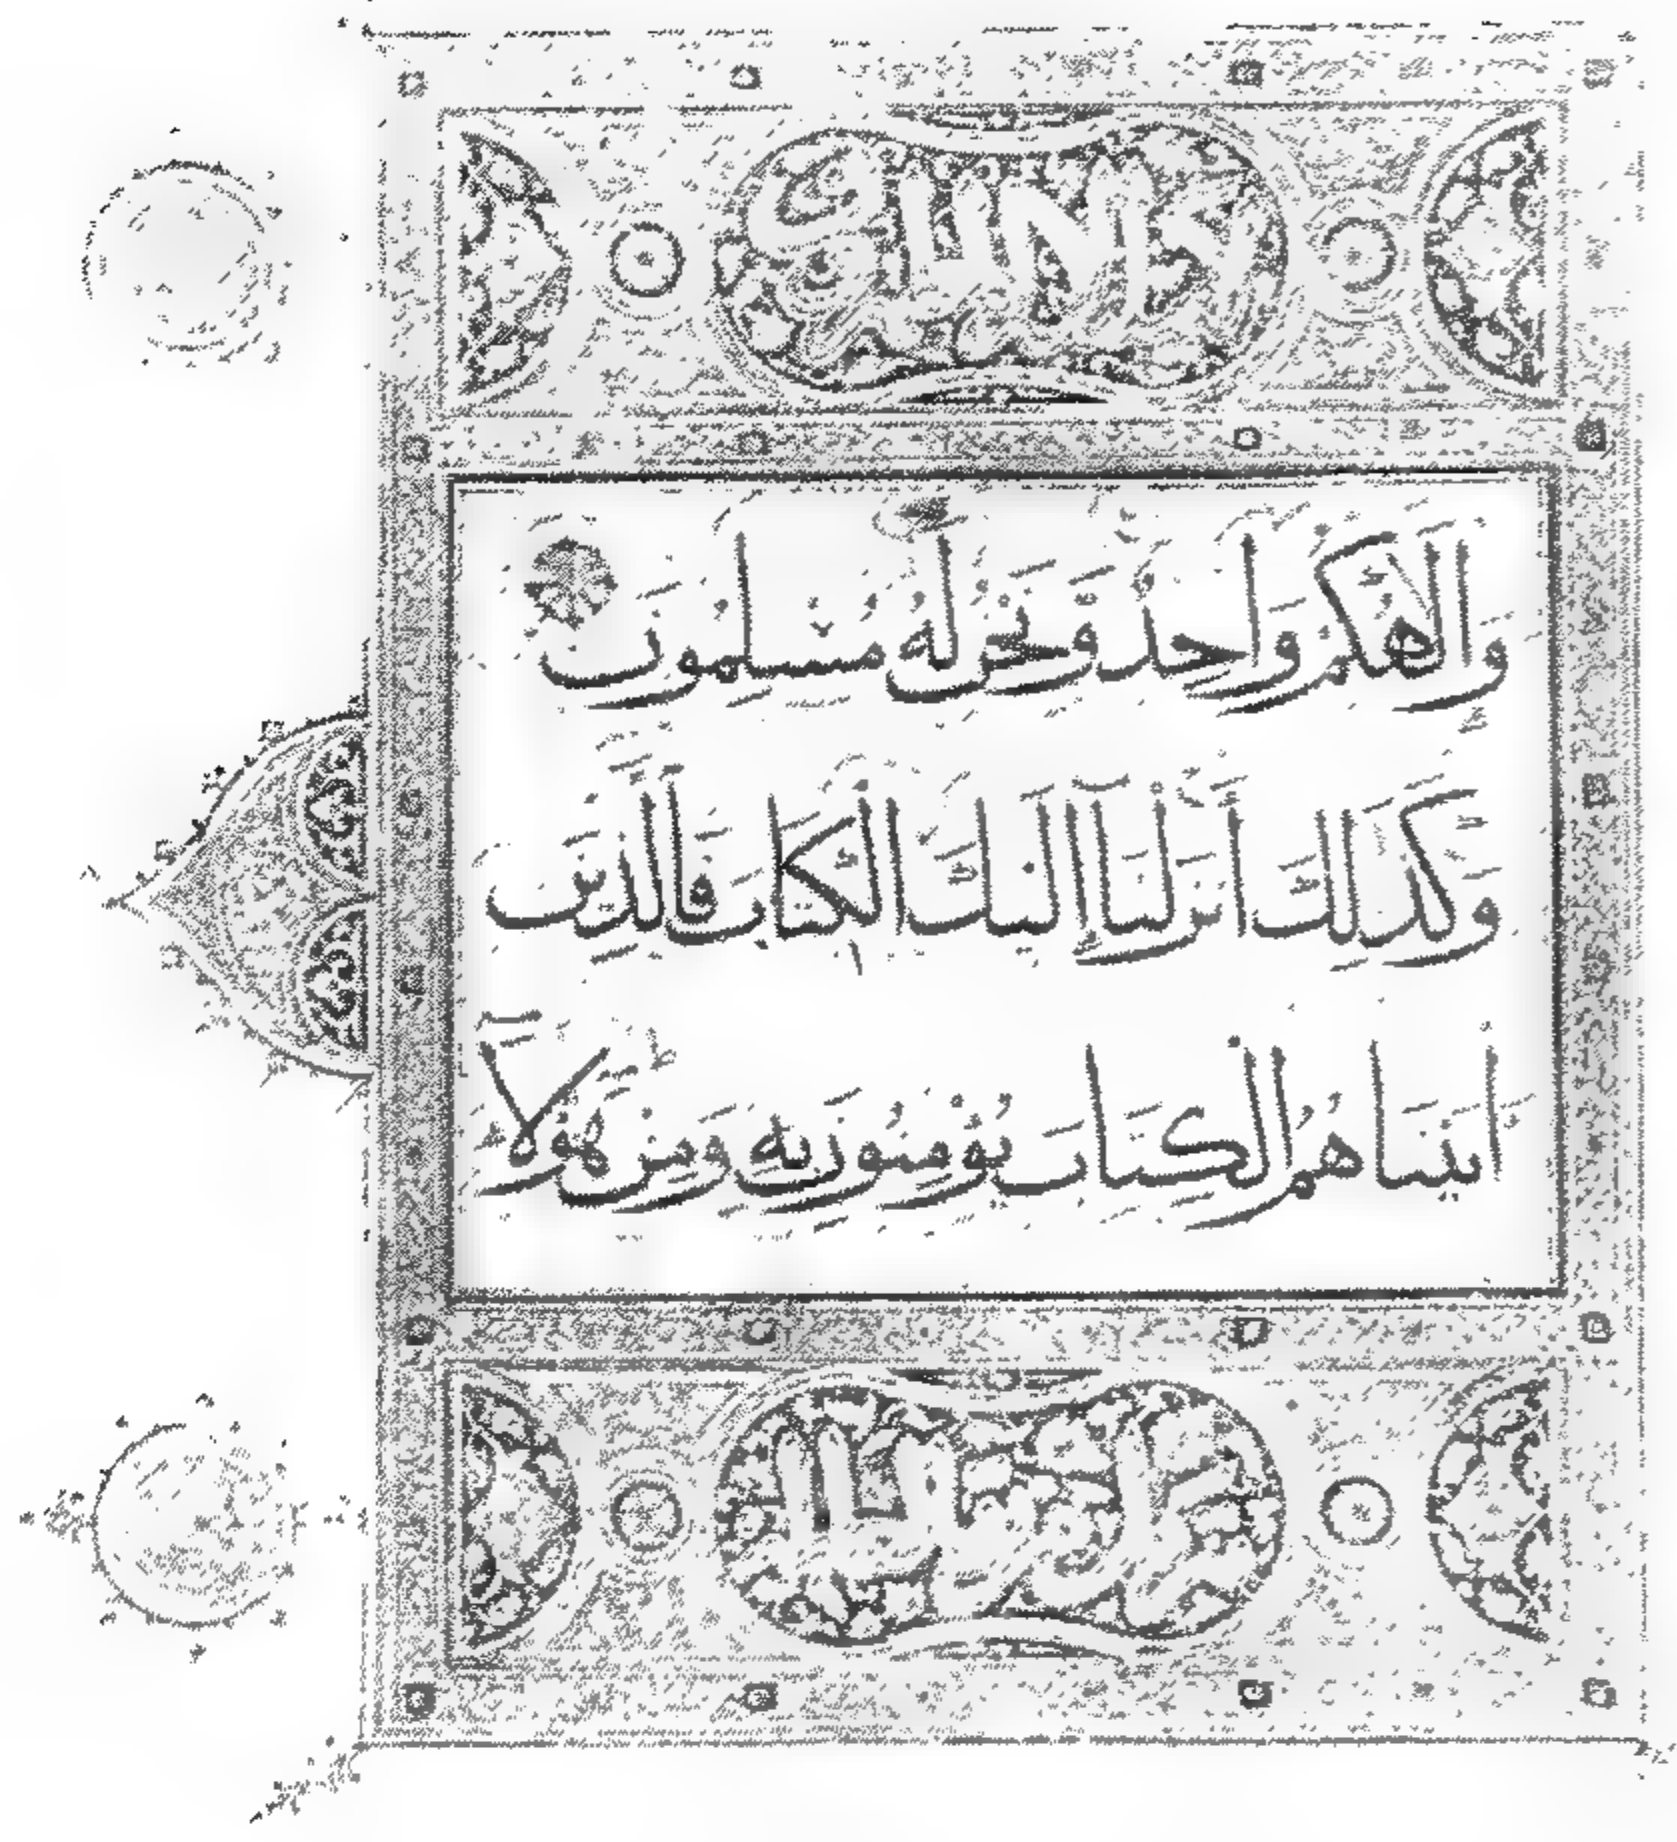 وَإِلَٰهُكُمْ وَاحِدٌ وَنَحْنُ لَهُ مُسْلِمُونَ
وَكَذَٰلِكَ أَنْزَلْنَا إِلَيْكَ الْكِتَابَ فَالَّذِينَ
اتَيْنَاهُمُ الْكِتَابَ يُؤْمِنُونَ بِهِ وَمِنْ هَؤُلَاءِ